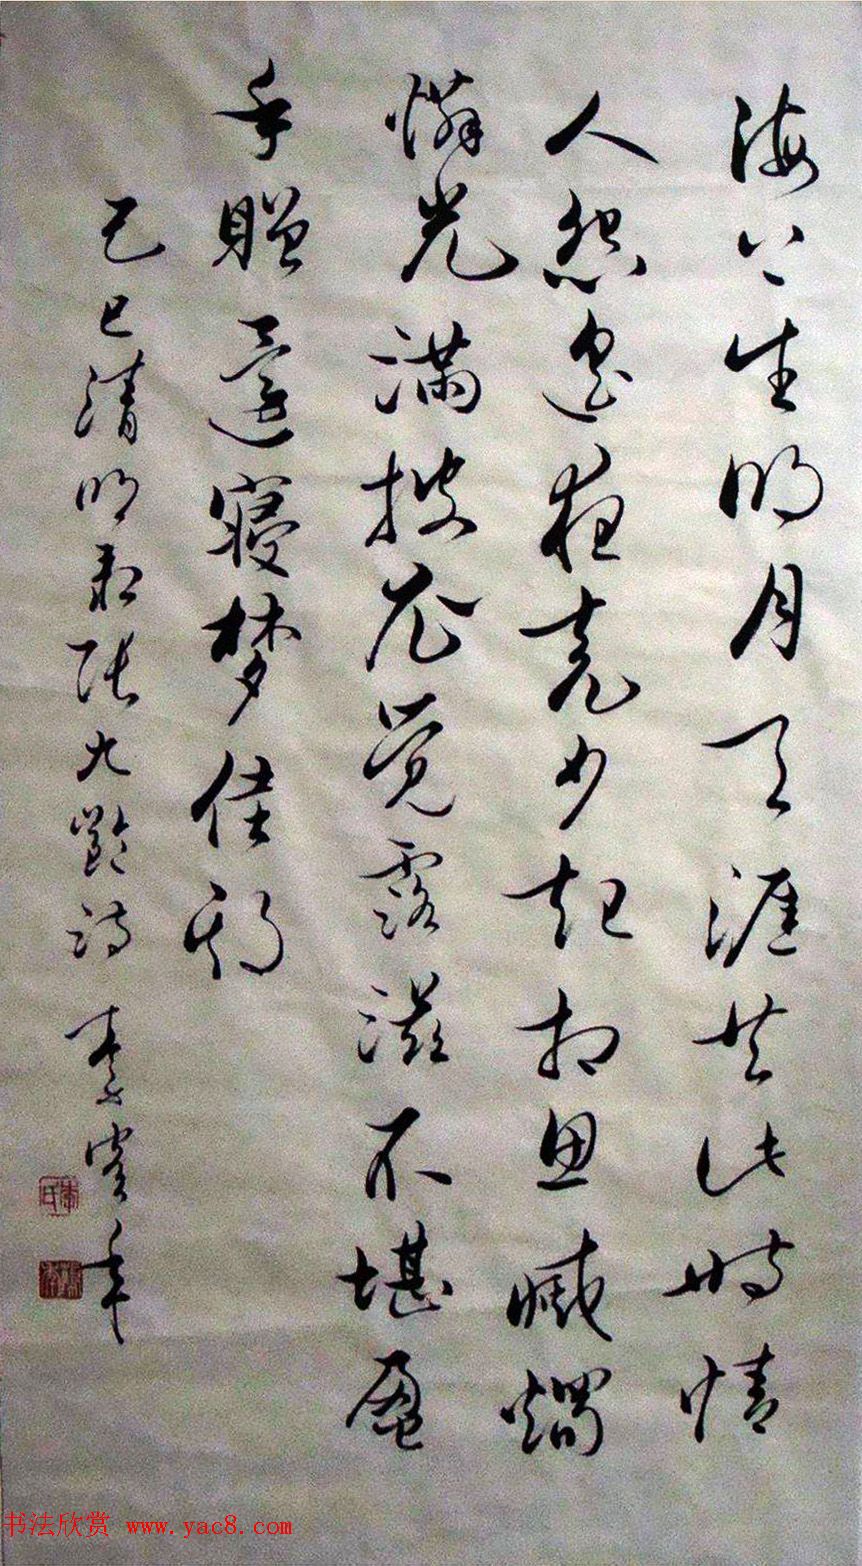 海上生明月天涯共此時情
人怨遥夜竟夕起相思滅燭
憐光滿披衣觉露滋不堪盈
手贈還寢梦佳期
己巳清明录張九齡詩 李鶴年
书法欣赏 www.yac8.com